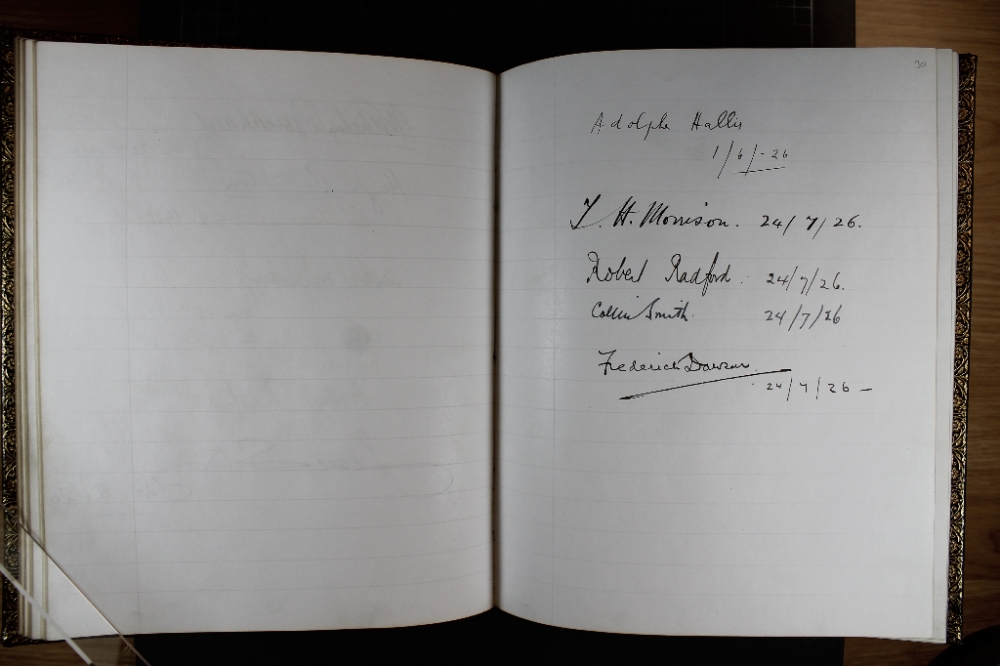 30
Adolphe Hallis
1/6/-26
T. H. Morrison. 24/7/26.
Robert Radford. 24/7/26.
Collin Smith. 24/7/26
Frederick Dawson.
24/7/26 -